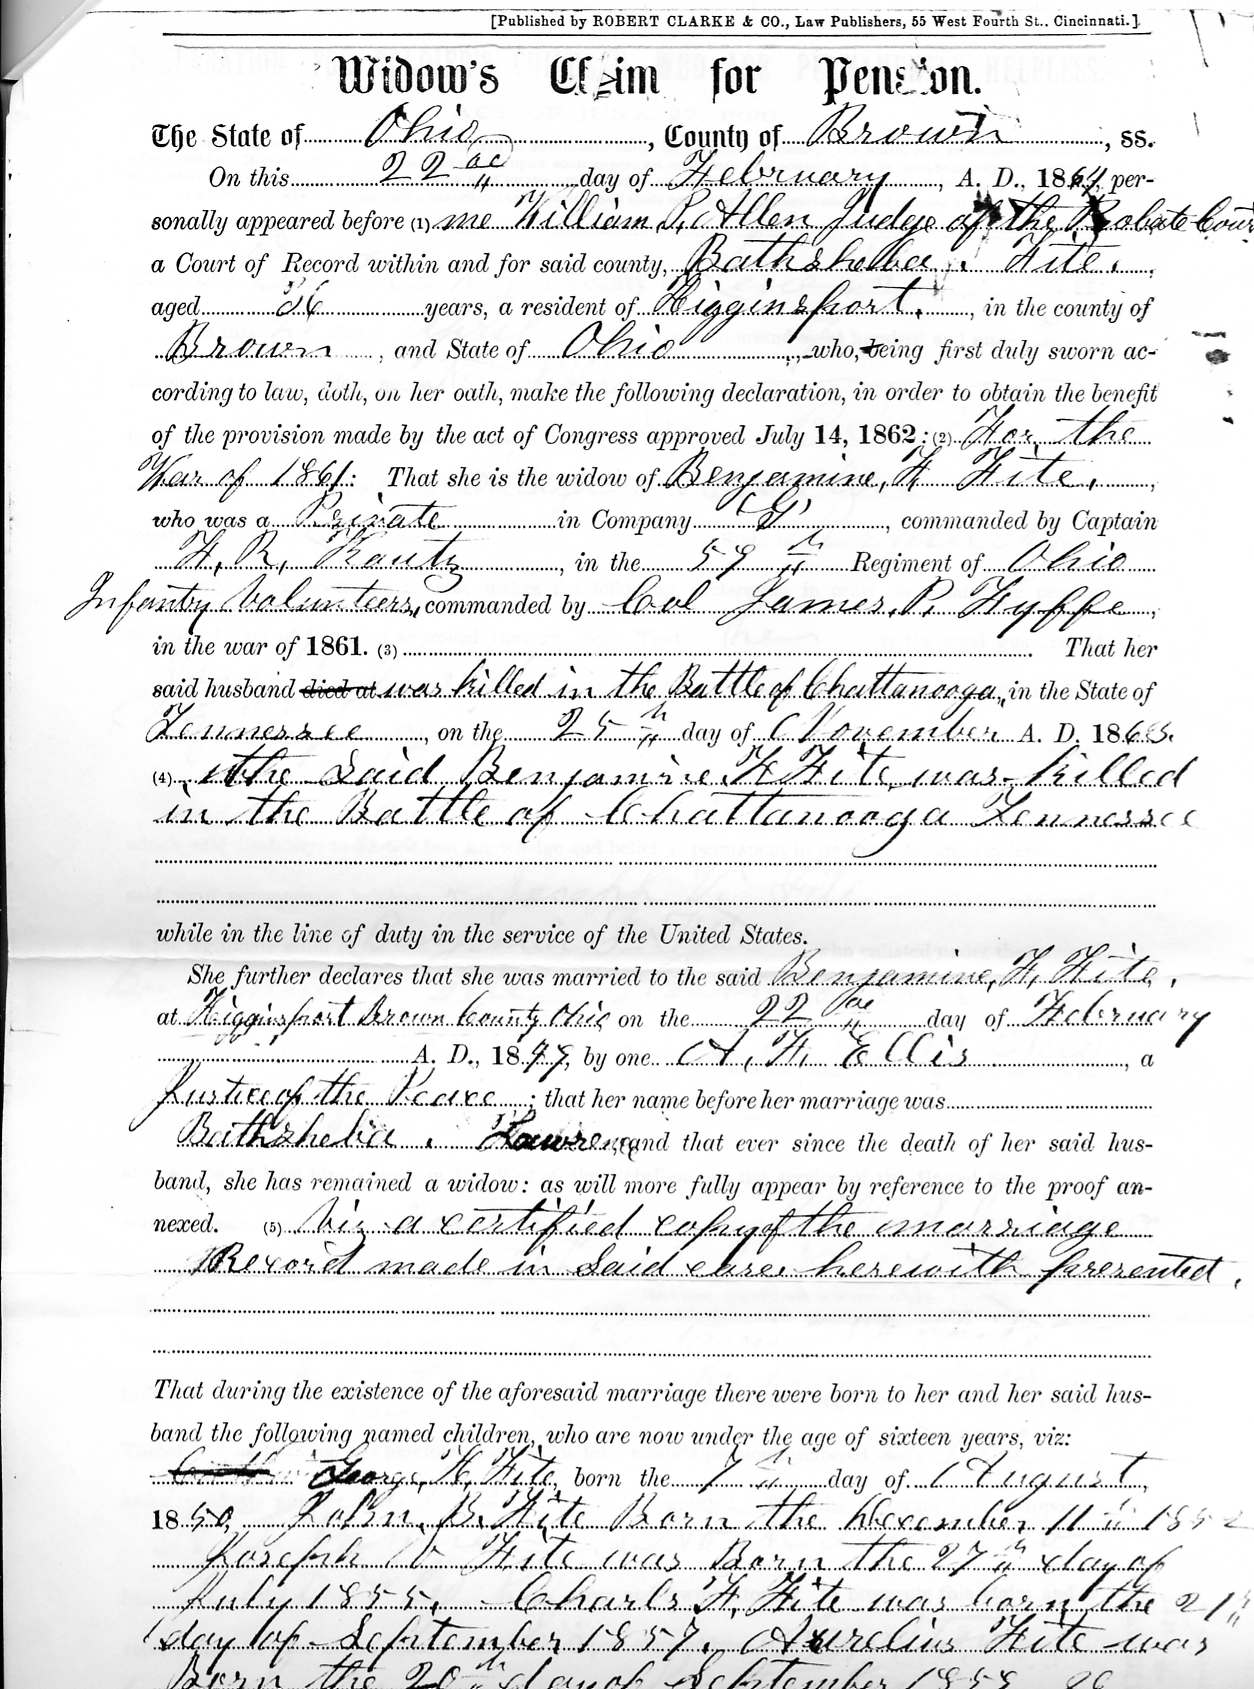 [Published by ROBERT CLARKE & CO., Law Publishers, 55 West Fourth St., Cincinnati.]
Widow's Claim for Pension.
The State of Ohio, County of Brown, ss.
On this 22nd day of February, A. D., 1864, per-
sonally appeared before (1) me William P. Allen Judge of the Probate Cour
a Court of Record within and for said county, Bathsheba. Fite.
aged 36 years, a resident of Higginsport, in the county of
Brown, and State of Ohio, who, being first duly sworn ac-
cording to law, doth, on her oath, make the following declaration, in order to obtain the benefit
of the provision made by the act of Congress approved July 14, 1862: (2) For the
War of 1861: That she is the widow of Benjamine, F. Fite,
who was a Private in Company "G", commanded by Captain
F. R. Kautz, in the 59th Regiment of Ohio
Infantry Volunteers, commanded by Col James. P. Fyffe,
in the war of 1861. (3) That her
said husband died at was killed in the Battle of Chattanooga, in the State of
Tennessee, on the 25th day of November A. D. 1863.
(4) the Said Benjamine. F Fite was killed
in the Battle of Chattanooga Tennessee
while in the line of duty in the service of the United States.
She further declares that she was married to the said Benjamine, F. Fite,
at Higginsport Brown County Ohio on the 22nd day of February
A. D., 1849, by one A. F. Ellis, a
Justice of the Peace; that her name before her marriage was
Bathsheba. Lawrence, and that ever since the death of her said hus-
band, she has remained a widow: as will more fully appear by reference to the proof an-
nexed. (5) Viz a certified copy of the marriage
Record made in Said case herewith presented.
That during the existence of the aforesaid marriage there were born to her and her said hus-
band the following named children, who are now under the age of sixteen years, viz:
George, H, Fite, born the 7th day of August,
1850, John, B. Fite Born the December 11th 1852
Joseph W Fite was Born the 27th day of
July 1855. Charls F. Fite was born the 21st
day of September 1857. Aurelius Fite was
Born the 20th day of September 1859